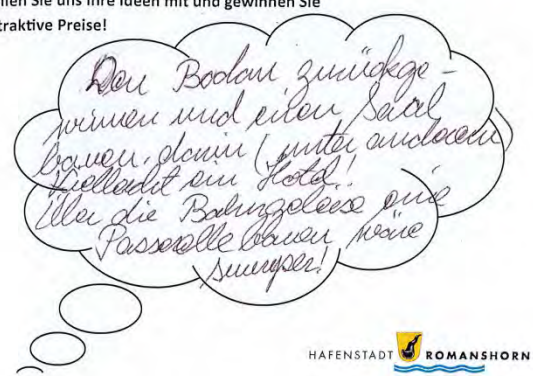 len Sie uns Ihre Ideen mit und gewinnen Sie
traktive Preise!
Den Bodan zurückge-
winnen und einen Saal
bauen, darin (unter anderem)
Vielleicht ein Hotel!
Über die Bahngeleise eine
Passerelle bauen, wäre
super!
HAFENSTADT ROMANSHORN